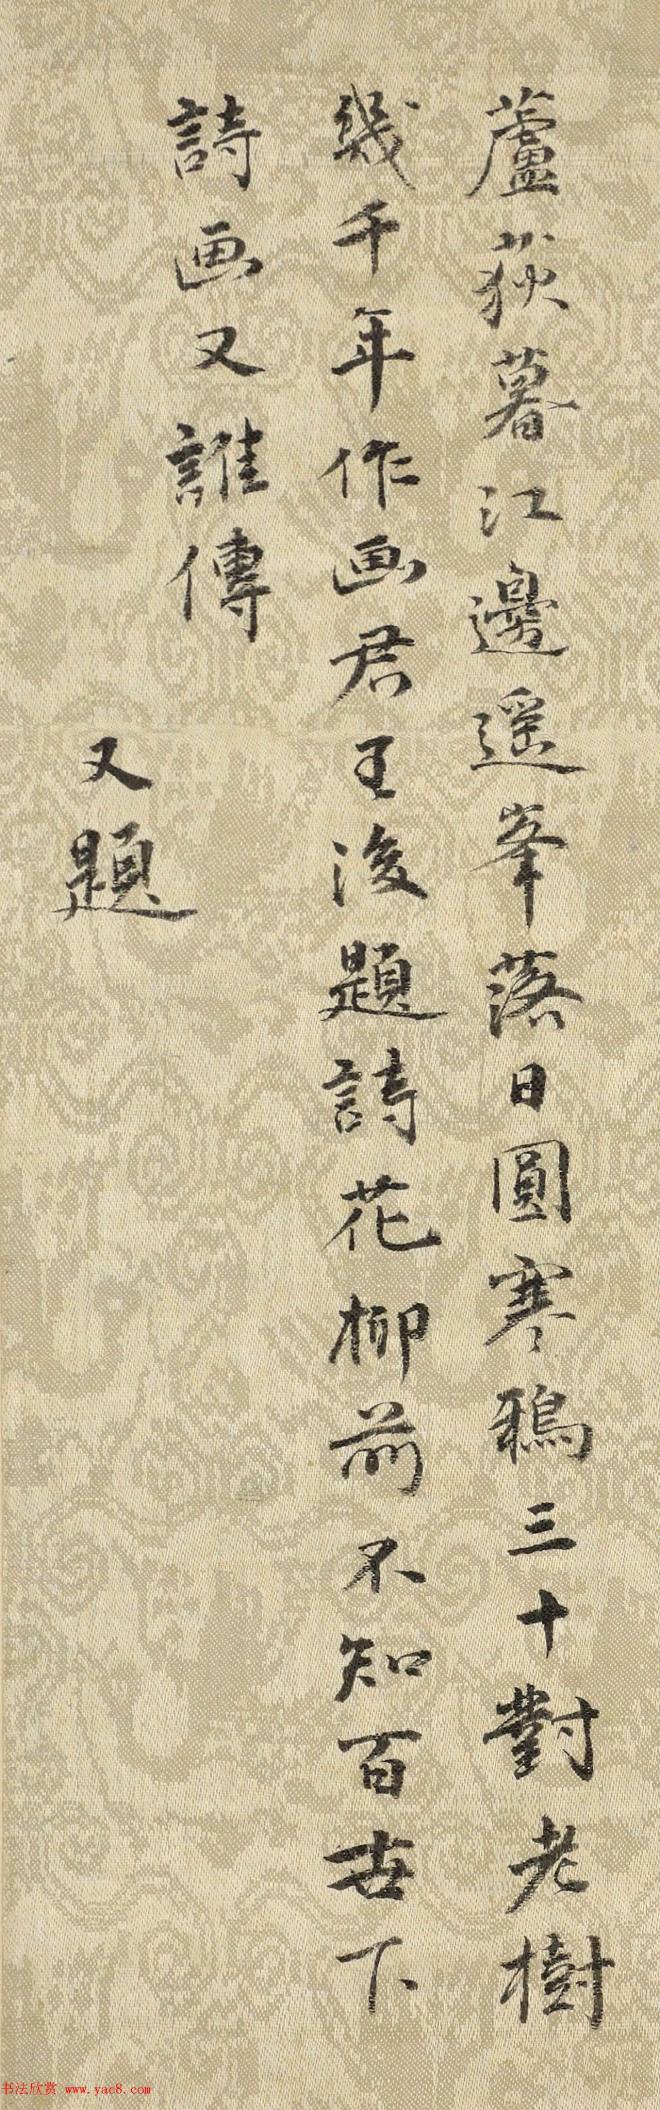 蘆荻暮江邊遥峯落日圓寒鴉三十對老樹
幾千年作画君王後題詩花柳前不知百世下
詩画又誰傳
又題
书法欣赏 www.yac8.com